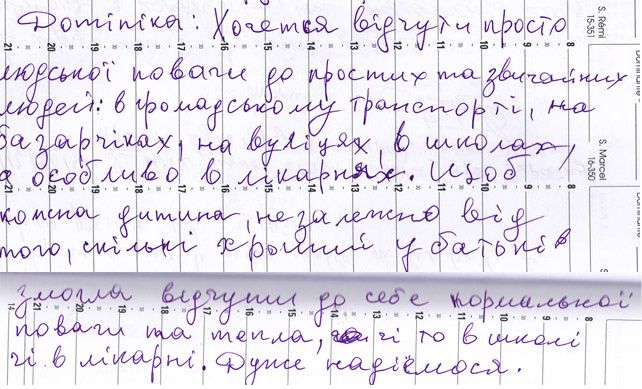 Домініка: Хочеться відчути просто
людської поваги до простих та звичайних
людей: в громадському транспорті, на
базарчіках, на вуліцях, в школах,
а особливо в лікарнях. Щоб
кожна дитина, незалежно від
того, скількі у батьків
змогла відчути до себе нормальної
поваги та тепла, чі то в школі
чі в лікарні. Дуже надіємося.
S. Rémi
15-351
S. Marcel
16-350
21 20 19 18 17 16 15 14 13 12 11 10 9 8